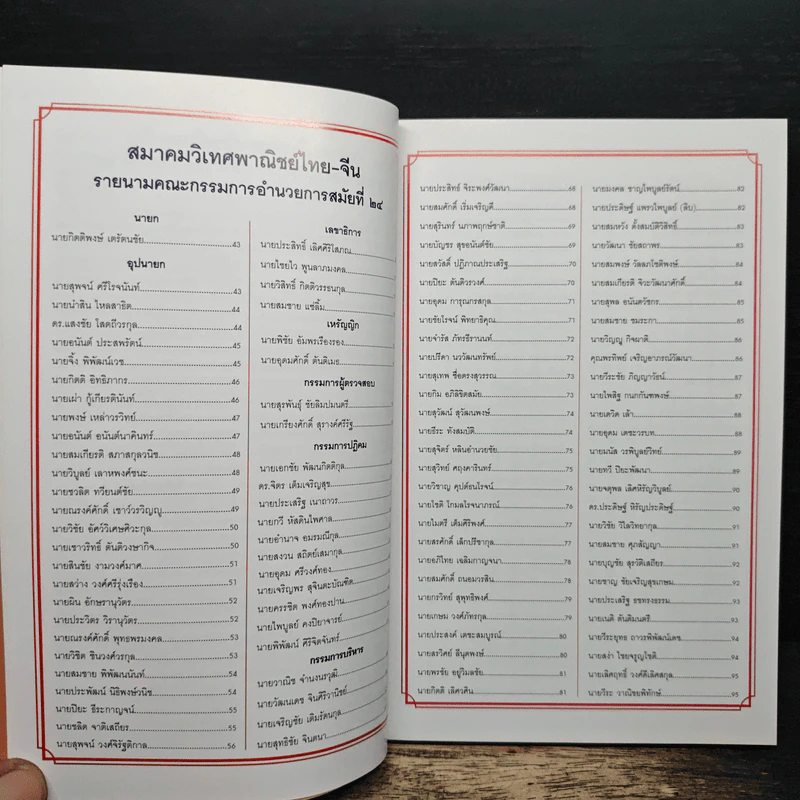 สมาคมวิเทศพาณิชย์ไทย-จีน
รายนามคณะกรรมการอำนวยการสมัยที่ ๒๔
นายก
นายกิตติพงษ์ เตรัตนชัย 43
อุปนายก
นายสุพจน์ ศรีโรจนันท์ 43
นายนำสิน ไหลสาธิต 44
ดร.แสงชัย โสตถีวรกุล 44
นายอนันต์ ประสพรัตน์ 45
นายจิ้ง พิพัฒน์เวช 45
นายกิตติ อิทธิภากร 46
นายเผ่า กู้เกียรตินันท์ 46
นายพงษ์ เหล่าวรวิทย์ 47
นายอนันต์ อนันต์นาคินทร์ 47
นายสมเกียรติ สภาสกุลวนิช 48
นายวิบูลย์ เลาหพงศ์ชนะ 48
นายชวลิต ทวียนต์ชัย 49
นายณรงค์ศักดิ์ เชาว์วรวิญญู 49
นายวิชัย อัศว์วิเศษศิวะกุล 50
นายเชาวริทธิ์ ตันติวงษากิจ 50
นายสินชัย งามวงศ์มาศ 51
นายสว่าง วงศ์ศรีรุ่งเรือง 51
นายผิน อักษรานุวัตร 52
นายประวิตร วิรานุวัตร 52
นายณรงค์ศักดิ์ พุทธพรมงคล 53
นายวิชิต ชินวงศ์วรกุล 53
นายสมชาย พิพัฒนนันท์ 54
นายประพัฒน์ นิธิพงษ์วนิช 54
นายปิยะ ธีระกาญจน์ 55
นายชลิต จาติเสถียร 55
นายสุพจน์ วงศ์จิรัฐติกาล 56
เลขาธิการ
นายประสิทธิ์ เลิศศิริโสภณ
นายไชยไว พูนลาภมงคล
นายวิสิทธิ์ กิตติวรรธนกุล
นายสมชาย แซ่ลิ้ม
เหรัญญิก
นายพิชัย อัมพรเรืองรอง
นายอุดมศักดิ์ ตันติเมธ
กรรมการผู้ตรวจสอบ
นายสุรพันธุ์ ชัยลิมปมนตรี
นายเกรียงศักดิ์ สุรางค์ศรีรัฐ
กรรมการปฏิคม
นายเอกชัย พัฒนกิตติกุล
ดร.จิตร เต็มเจริญสุข
นายประเสริฐ เนาถาวร
นายกวี หัสดินไพศาล
นายอำนาจ อมรมณีกุล
นายสงวน สถิตย์เสมากุล
นายอุดม ศรีวงศ์ทอง
นายเจริญพร สุจินตะบัณฑิต
นายครรชิต พงศ์ทองปาน
นายไพบูลย์ คงปิยาจารย์
นายพิพัฒน์ ศิริจิตจันทร์
กรรมการบริหาร
นายวาณิช จำนงนรวุฒิ
นายวัฒนเดช จินศิริวานิชย์
นายเจริญชัย เติมรัตนกุล
นายสุทธิชัย จินตนา
นายประสิทธิ์ จิระพงศ์วัฒนา 68
นายสมศักดิ์ เริ่มเจริญดี 68
นายสุรินทร์ นภาพฤกษ์ชาติ 69
นายบัญชร สุขอนันต์ชัย 69
นายสวัสดิ์ ปฏิภาณประเสริฐ 70
นายปิยะ ตันติวรวงศ์ 70
นายอุดม การุณกรสกุล 71
นายชัยโรจน์ พิทยาธิคุณ 71
นายจำรัส ภัทรธีรานนท์ 72
นายปรีดา นววัฒนทรัพย์ 72
นายสุเทพ ซื่อตรงสุวรรณ 73
นายกิม อภิลิขิตสมัย 73
นายสุวัฒน์ สุวัฒนพงษ์ 74
นายธีระ ทังสมบัติ 74
นายสุจิตร์ หลินอำนวยชัย 75
นายสุวิทย์ ศฤงคารินทร์ 75
นายวิชาญ คุปต์ธนโรจน์ 76
นายโชติ โกมลโรจนาภรณ์ 76
นายไมตรี เติมศิริพงศ์ 77
นายสรศักดิ์ เล็กปรีชากุล 77
นายอภิไทย เฉลิมกาญจนา 78
นายสมศักดิ์ ถนอมวรสิน 78
นายกรวิทย์ สุพุทธิพงศ์ 79
นายเกษม วงศ์ภัทรกุล 79
นายประสงค์ เตชะสมบูรณ์ 80
นายสรวิศย์ ลีนุตพงษ์ 80
นายพรชัย อยู่วิมลชัย 81
นายกิตติ เลิศวศิน 81
นายมงคล ชาญไพบูลย์รัตน์ 82
นายประดิษฐ์ แพรวไพบูลย์ (ลิบ) 82
นายสมหวัง ตั้งสมบัติวิสิทธิ์ 83
นายวัฒนา ชัยสถาพร 83
นายสมพงษ์ วัลลภโชติพงษ์ 84
นายสมเกียรติ จิวะวัฒนาศักดิ์ 84
นายสุพล อนันตวัชกร 85
นายสมชาย ชมระกา 85
นายวิญญู กิจผาติ 86
คุณพรทิพย์ เจริญอาภรณ์วัฒนา 86
นายวีระชัย ภิญญาวัธน์ 87
นายไพสิฐ กนกกันฑพงษ์ 87
นายเดวิด เล้า 88
นายอุดม เตชะวรบท 88
นายมนัส วรพิบูลย์วิทย์ 89
นายทวี ปิยะพัฒนา 89
นายจตุพล เลิศหิรัญวิบูลย์ 90
ดร.ประดิษฐ์ หิรัญประดิษฐ์ 90
นายวิชัย วิไลวิทยากุล 91
นายสมชาย ศุภสัญญา 91
นายบุญชัย สุรวัติเสถียร 92
นายชาญ ชัยเจริญสุขเกษม 92
นายประเสริฐ ธชทรงธรรม 93
นายเนติ ตันติมนตรี 93
นายวีระยุทธ ถาวรพิพัฒน์เดช 94
นายสง่า ไชยจรูญโชติ 94
นายเลิศฤทธิ์ วงศ์ดีเลิศสกุล 95
นายวีระ วาณิชยพิทักษ์ 95